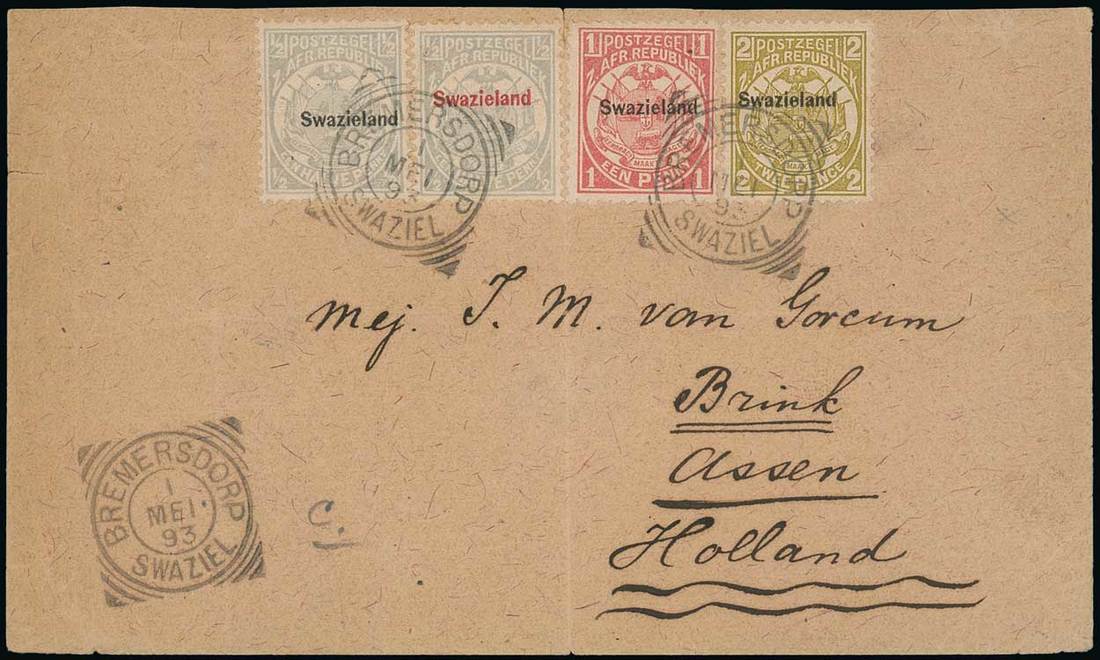 ½ POSTZEGEL ½
Z. AFR. REPUBLIEK
Swazieland
½
½ POSTZEGEL ½
Z. AFR. REPUBLIEK
Swazieland
PENNY ½
1 POSTZEGEL 1
Z. AFR. REPUBLIEK
Swazieland
1 EEN PENNY 1
2 POSTZEGEL 2
Z. AFR. REPUBLIEK
Swazieland
2 TWEE PENCE 2
BREMERSDORP
1
MEI
93
SWAZIEL
BREMERSDORP
93
SWAZIEL
Mej. J. M. van Gorcum
Brink
Assen
Holland
BREMERSDORP
1
MEI.
93
SWAZIEL